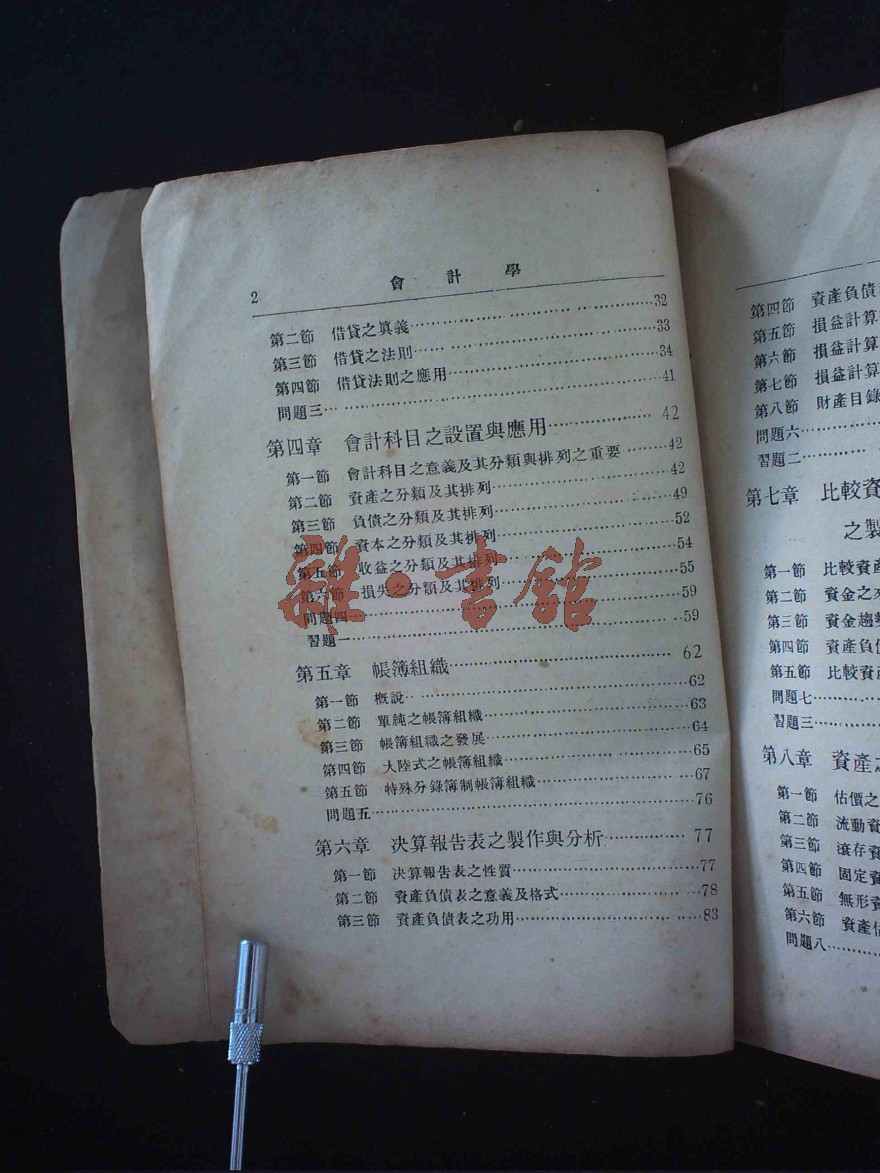 2 會計學
第二節 借貸之眞義……32
第三節 借貸之法則……33
第四節 借貸法則之應用……34
問題三……41
第四章 會計科目之設置與應用……42
第一節 會計科目之意義及其分類與排列之重要……42
第二節 資產之分類及其排列……42
第三節 負債之分類及其排列……49
第四節 資本之分類及其排列……52
第五節 收益之分類及其排列……54
第六節 損失之分類及其排列……55
問題四……59
習題一……59
第五章 帳簿組織……62
第一節 概說……62
第二節 單純之帳簿組織……63
第三節 帳簿組織之發展……64
第四節 大陸式之帳簿組織……65
第五節 特殊分錄簿制帳簿組織……67
問題五……76
第六章 決算報告表之製作與分析……77
第一節 決算報告表之性質……77
第二節 資產負債表之意義及格式……78
第三節 資產負債表之功用……83
雜·書館
第四節 資產負債
第五節 損益計算
第六節 損益計算
第七節 損益計算
第八節 財產目錄
問題六……
習題二……
第七章 比較資
之製
第一節 比較資產
第二節 資金之
第三節 資金趨
第四節 資產負
第五節 比較資產
問題七……
習題三……
第八章 資產之
第一節 估價之
第二節 流動資
第三節 滾存資
第四節 固定資
第五節 無形資
第六節 資產估
問題八……